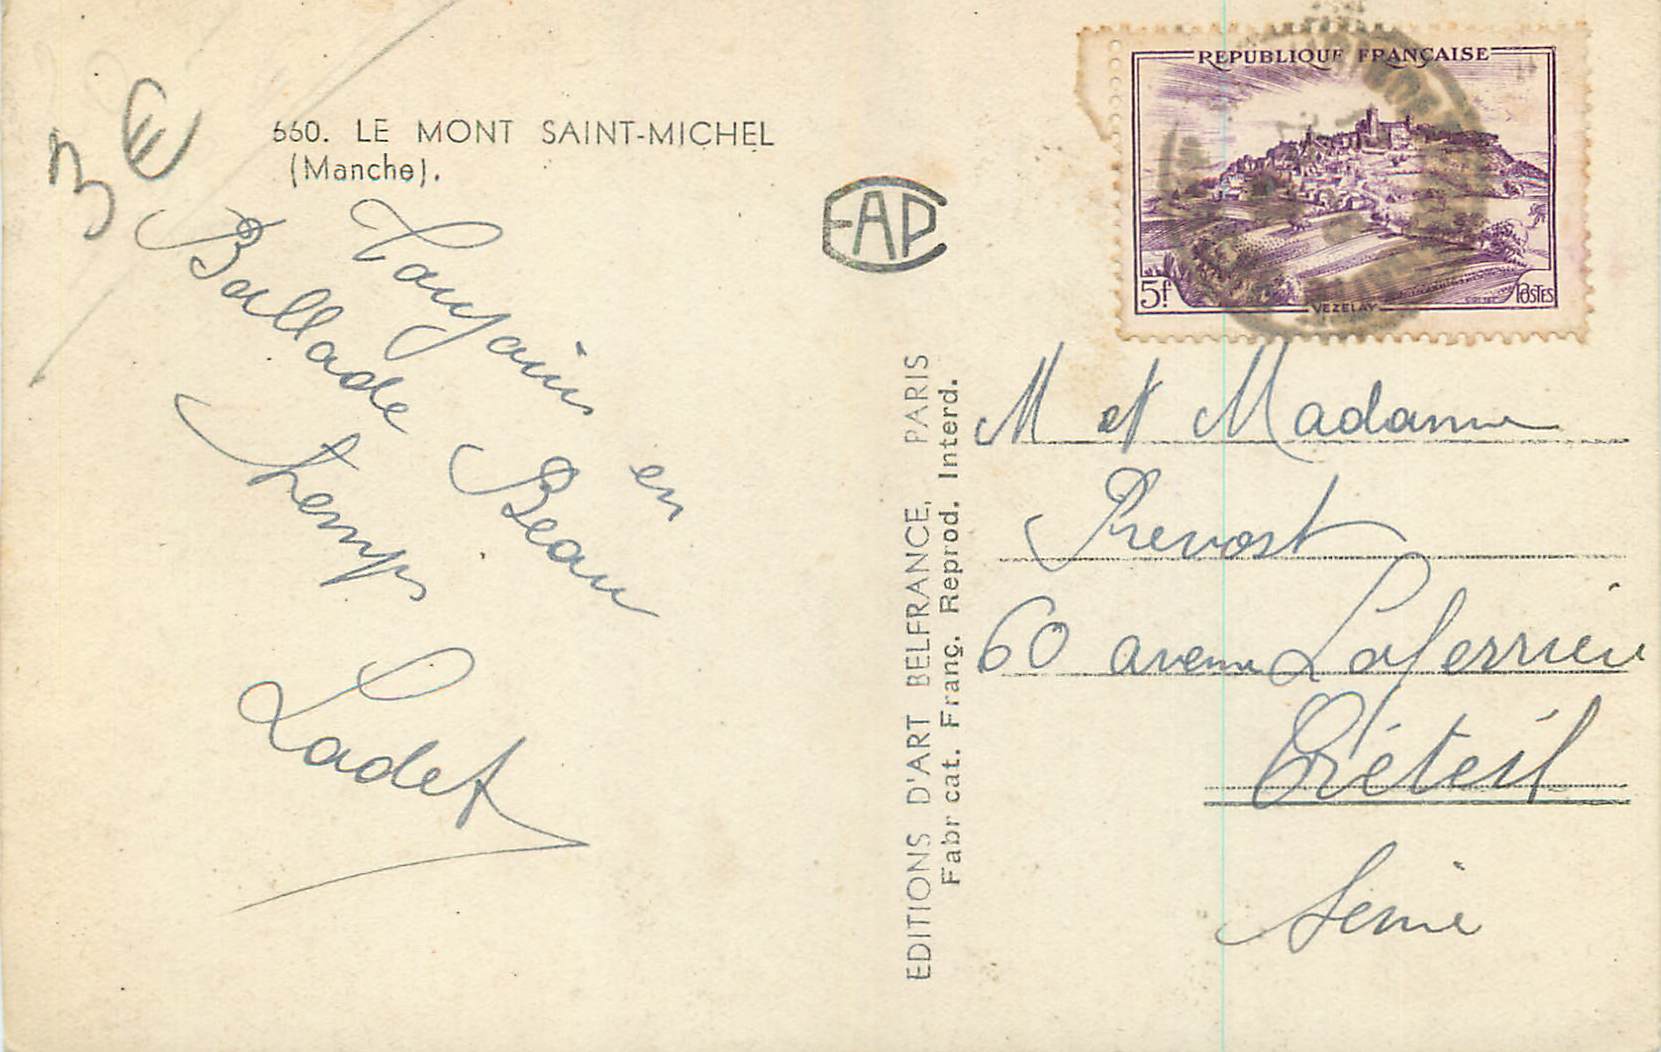 3€
660. LE MONT SAINT-MICHEL
(Manche).
Toujours en
Ballade Beau
temps
Ladet
EAP
EDITIONS D'ART BELFRANCE, PARIS
Fabr cat. Franç. Reprod. Interd.
REPUBLIQUE FRANÇAISE
5f
VEZELAY
POSTES
M et Madame
Prevost
60 avenue Laferrière
Créteil
Seine